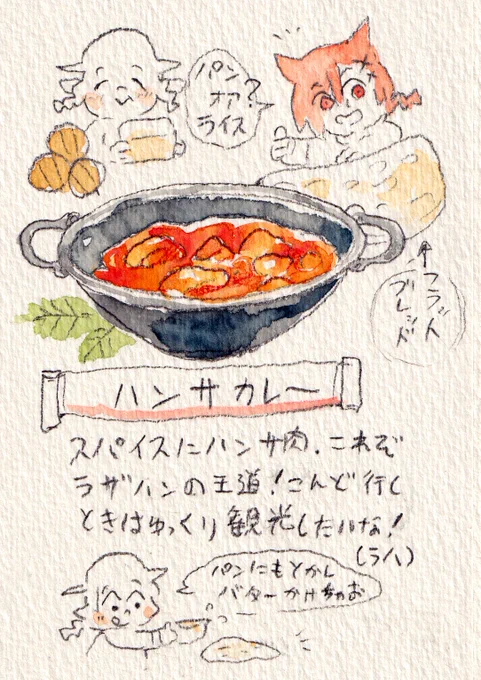 パン
オア?
ライス
フラット
ブレッド
ハンサカレー
スパイスにハンサ肉、これぞ
ラザハンの王道!こんど行く
ときはゆっくり観光したいな!
(ラハ)
パンにもとかし
バターかけちゃお